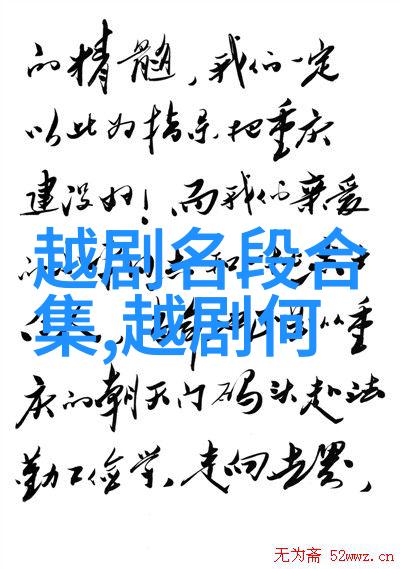 的精髓，我们一定
以此为指导把重庆
建设好！而我们亲爱
越剧名段合
集,越剧何
庆的朝天门码头赴法
勤工俭学，走向世界，
无为斋 52wwz.cn